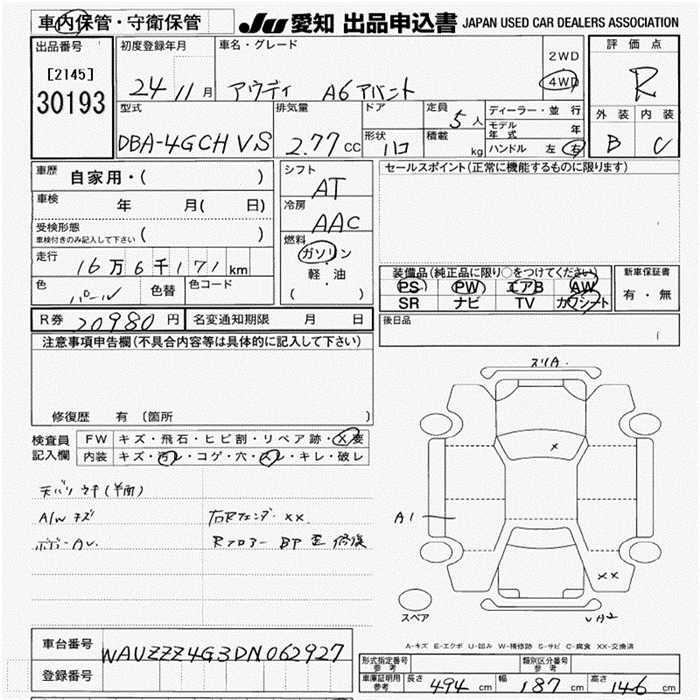 車内保管・守衛保管
JU 愛知 出品申込書 JAPAN USED CAR DEALERS ASSOCIATION
出品番号
[2145]
30193
初度登録年月
24 11月
車名・グレード
アウディ A6アバント
2WD
4WD
評価点
R
外装 内装
B C
型式
DBA-4GCHVS
排気量
2.77 CC
ドア
形状
ハコ
定員
5人
積載
kg
ディーラー・並行
モデル年式 年
ハンドル 左 右
車歴
自家用・( )
車検
年 月( 日)
受検形態
車検付きのみ記入して下さい
( )
走行
16万6千171km
色
パール
色替
色コード
シフト
AT
冷房
AAC
燃料
ガソリン
軽・油
( )
セールスポイント(正常に機能するものに限ります)
装備品(純正品に限り○をつけてください)
PS PW エアB AW
SR ナビ TV カワシート
新車保証書
有・無
R券 20980円
名変通知期限 月 日
後日品
注意事項申告欄(不具合内容等は具体的に記入して下さい)
修復歴 有 〔箇所 〕
検査員
記入欄
FW キズ・飛石・ヒビ割・リペア跡・X要
内装 キズ・汚レ・コゲ・穴・スレ・キレ・破レ
天バリ
A/W キズ
右Rフェンダー XX.
Rフロアー BP 歪 修復
スリA
X
A1
XX
スペア
A-キズ E-エクボ U-凹み W-補修跡 S-サビ C-腐食 XX-交換済
車台番号
WAUZZZ4G3DN062927
登録番号
形式指定番号
参考
類別区分番号
参考
車庫証明用
参考
長さ 494 cm 幅 187 cm 高さ 146 cm